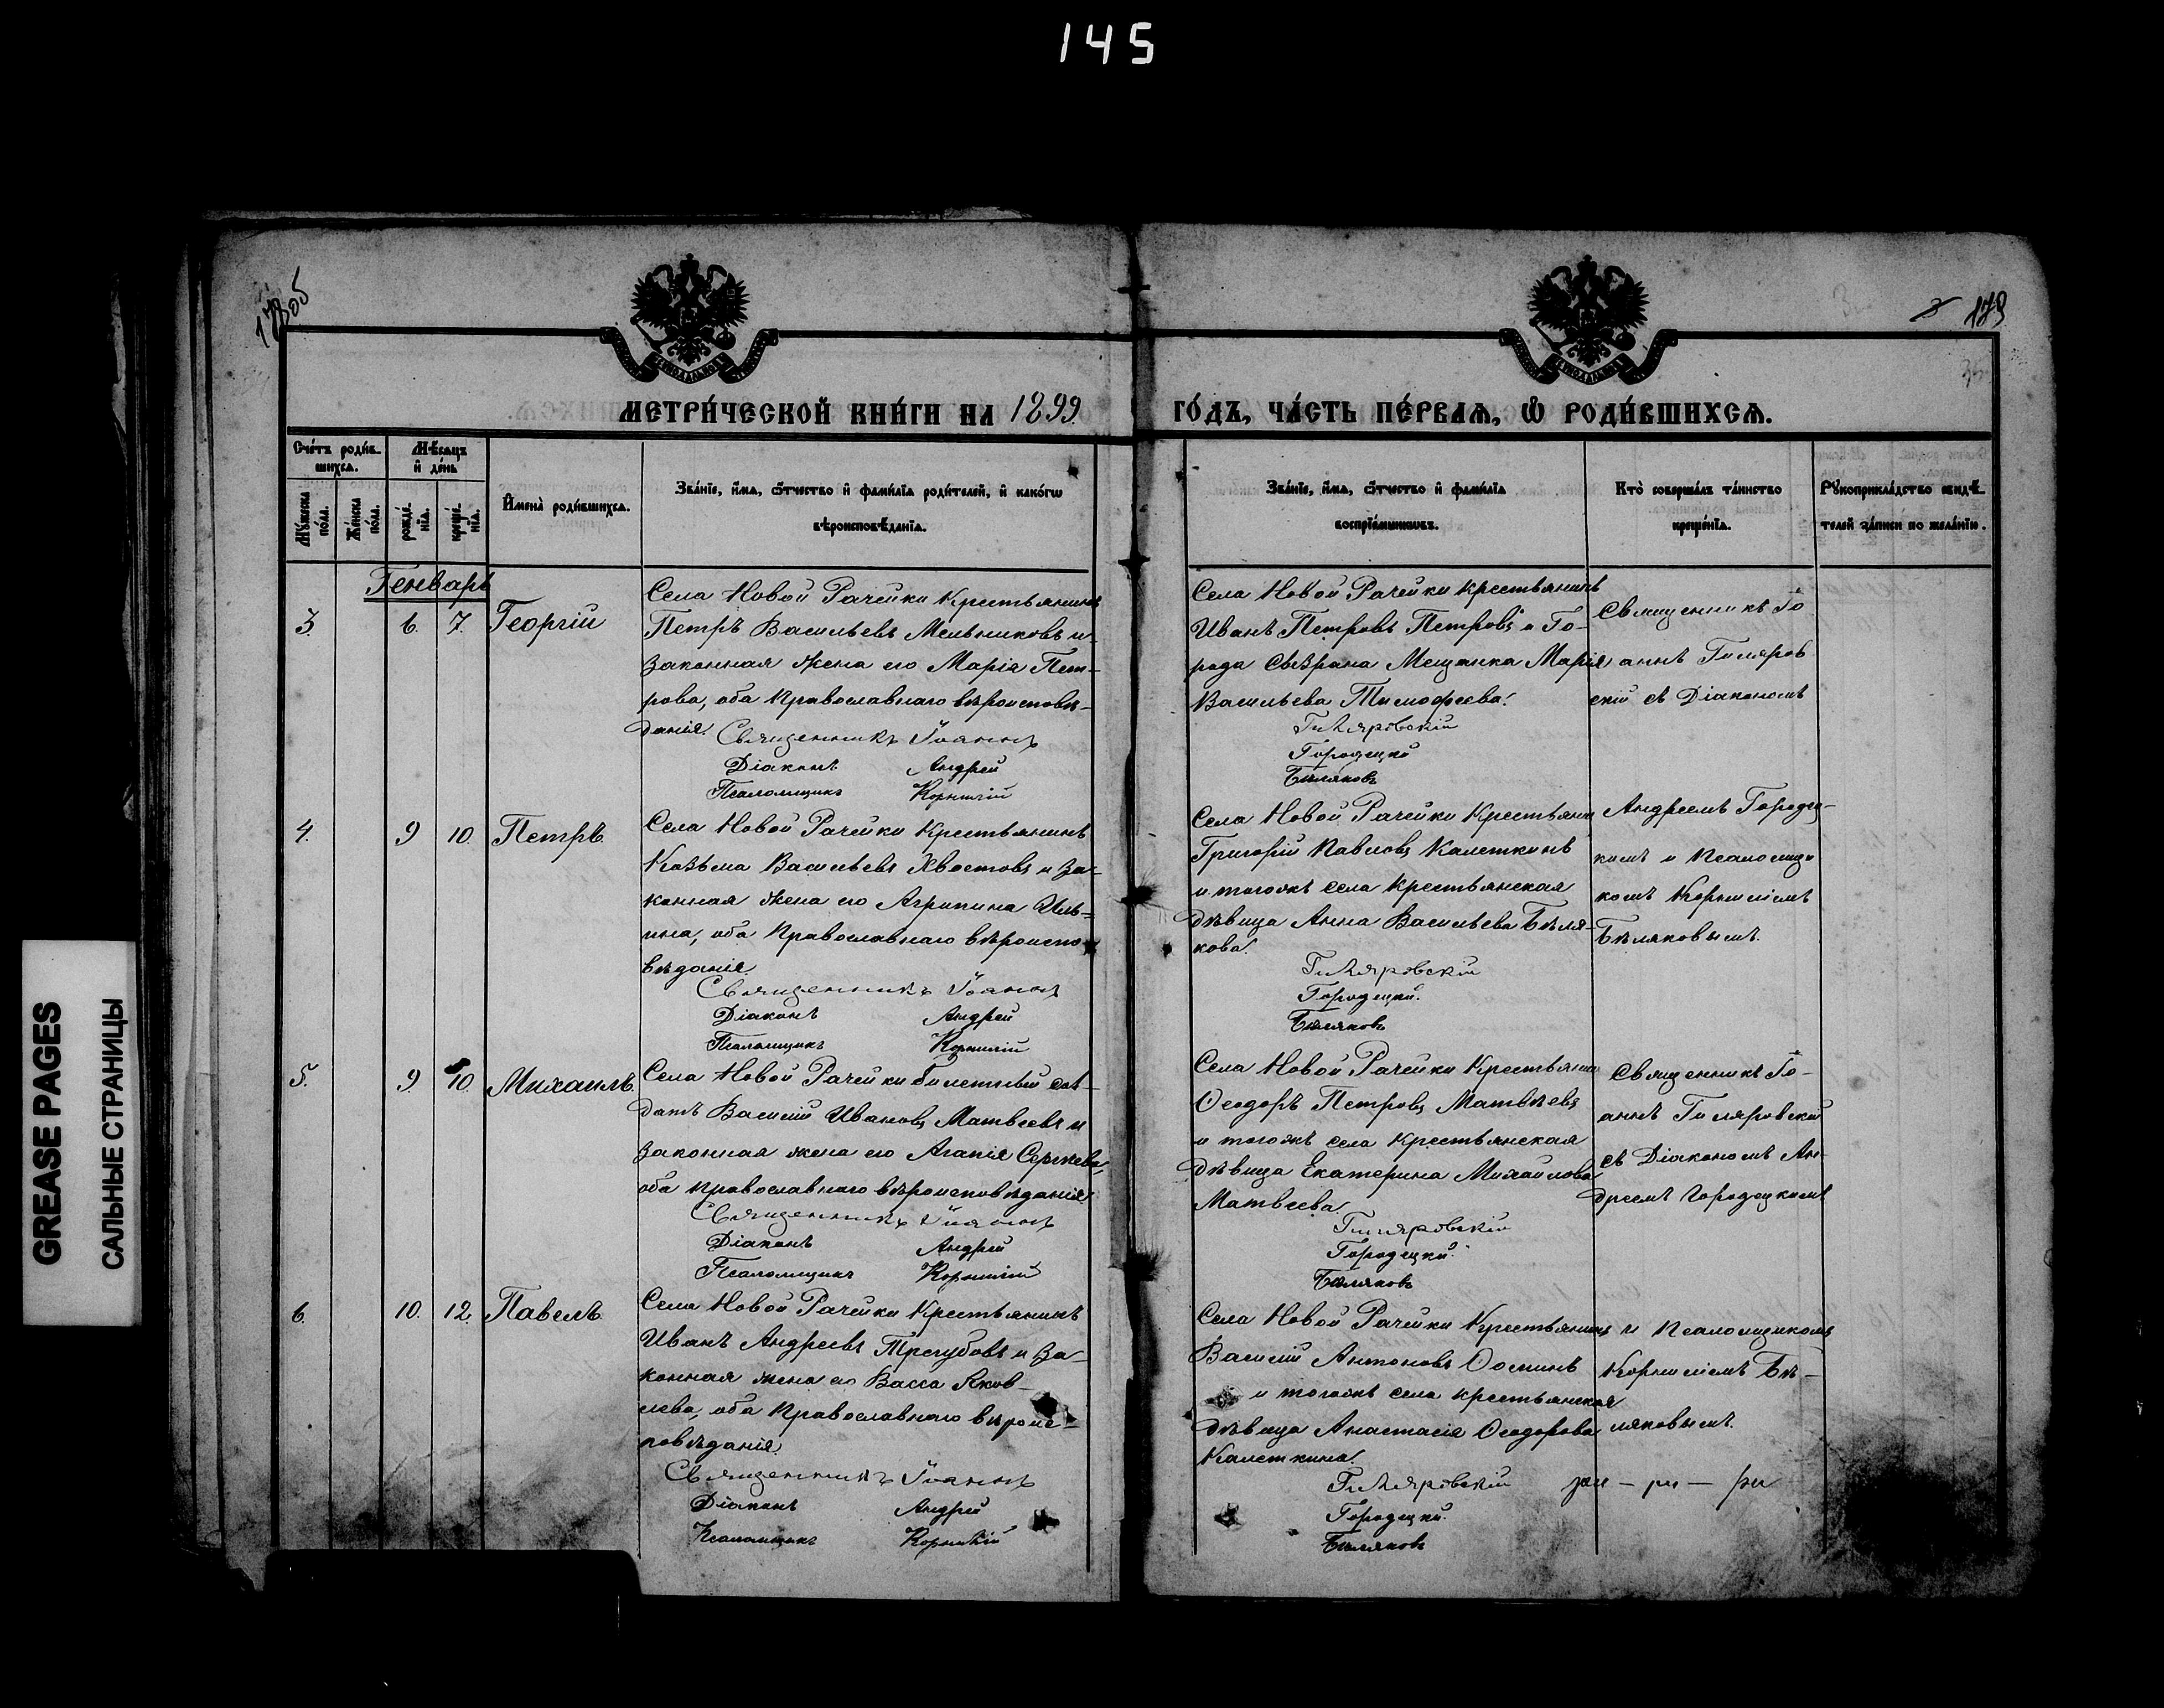 145
GREASE PAGES
САЛЬНЫЕ СТРАНИЦЫ
МЕТРИ́ЧЕСКОЙ КНИ́ГИ НА 1899
ГО́ДЪ, ЧА́СТЬ ПЕ́РВАѦ, Ѡ РОДИ́ВШИХСѦ.
Сче́тъ роди́в-
шихсѧ.
Мѣ́сѧцъ
и҆ де́нь
Мꙋ́жеска
по́ла.
Же́нска
по́ла.
рожде́-
нїѧ.
креще́-
нїѧ.
И҆мена̀ роди́вшихсѧ.
Зва́нїе, и҆́мѧ, ѻ҆́тчество и҆ фами́лїѧ роди́телей, и҆ како́гѡ
вѣроисповѣ́данїѧ.
Зва́нїе, и҆́мѧ, ѻ҆́тчество и҆ фами́лїѧ
воспрїе́мниковъ.
Кто̀ соверша́лъ та́инство
креще́нїѧ.
Рꙋкоприкла́дство свидѣ́-
телей за́писи по жела́нїю.
Генварь
3. 6. 7. Георгій
Села Новой Рачейки Крестьянинъ
Петръ Васильевъ Мельниковъ и
законная жена его Марія Пет-
рова, оба Православнаго вѣроисповѣ-
данія.
Священникъ Іоаннъ
Діаконъ Андрей
Псаломщикъ Корнилій
Села Новой Рачейки крестьянинъ
Иванъ Петровъ Петровъ и Го-
рода Сызрана Мещанка Марія
Васильева Тимофеева.
Гиляровскій
Городецкій
Бѣляковъ
Священникъ Іо
аннъ Гиляров
скій съ Діакономъ
4. 9 10 Петръ.
Села Новой Рачейки Крестьянинъ
Козьма Васильевъ Хвостовъ и за-
конная жена его Агрипина Иль-
ина, оба Православнаго вѣроиспо-
вѣданія.
Священникъ Іоаннъ
Діаконъ Андрей
Псаломщикъ Корнилій
Села Новой Рачейки Крестьянин
Григорій Павловъ Калеткинъ
и тогожъ села Крестьянская
дѣвица Анна Васильева Бѣля-
кова.
Гиляровскій
Городецкій.
Бѣляковъ
Андреемъ Городец-
кимъ и Псаломщи
комъ Корниліемъ
Бѣляковымъ.
5. 9. 10. Михаилъ.
Села Новой Рачейки билетный сол-
датъ Василій Ивановъ Матвеевъ и
законная жена его Агапія Сергѣева,
оба православнаго вѣроисповѣданія.
Священникъ Іоаннъ
Діаконъ Андрей
Псаломщикъ Корнилій
Села Новой Рачейки Крестьянин
Ѳеодоръ Петровъ Матвѣевъ
и тогожъ села Крестьянская
дѣвица Екатерина Михаилова
Матвеева.
Гиляровскій
Городецкій.
Бѣляковъ
Священникъ Іо-
аннъ Гиляровскій
съ Діакономъ Ан-
дреемъ Городецкимъ
6. 10. 12. Павелъ.
Села Новой Рачейки Крестьянинъ
Иванъ Андреевъ Трегубовъ и за-
конная жена его Васса Яков-
лева, оба Православнаго вѣроис-
повѣданія.
Священникъ Іоаннъ
Діаконъ Андрей
Псаломщикъ Корнилій
Села Новой Рачейки Крестьянинъ
Василій Антоновъ Ѳоминъ
и тогожъ села крестьянская
дѣвица Анастасія Ѳеодорова
Калеткина.
Гиляровскій
Городецкій.
Бѣляковъ
и Псаломщикомъ
Корниліемъ Бѣ-
ляковымъ.